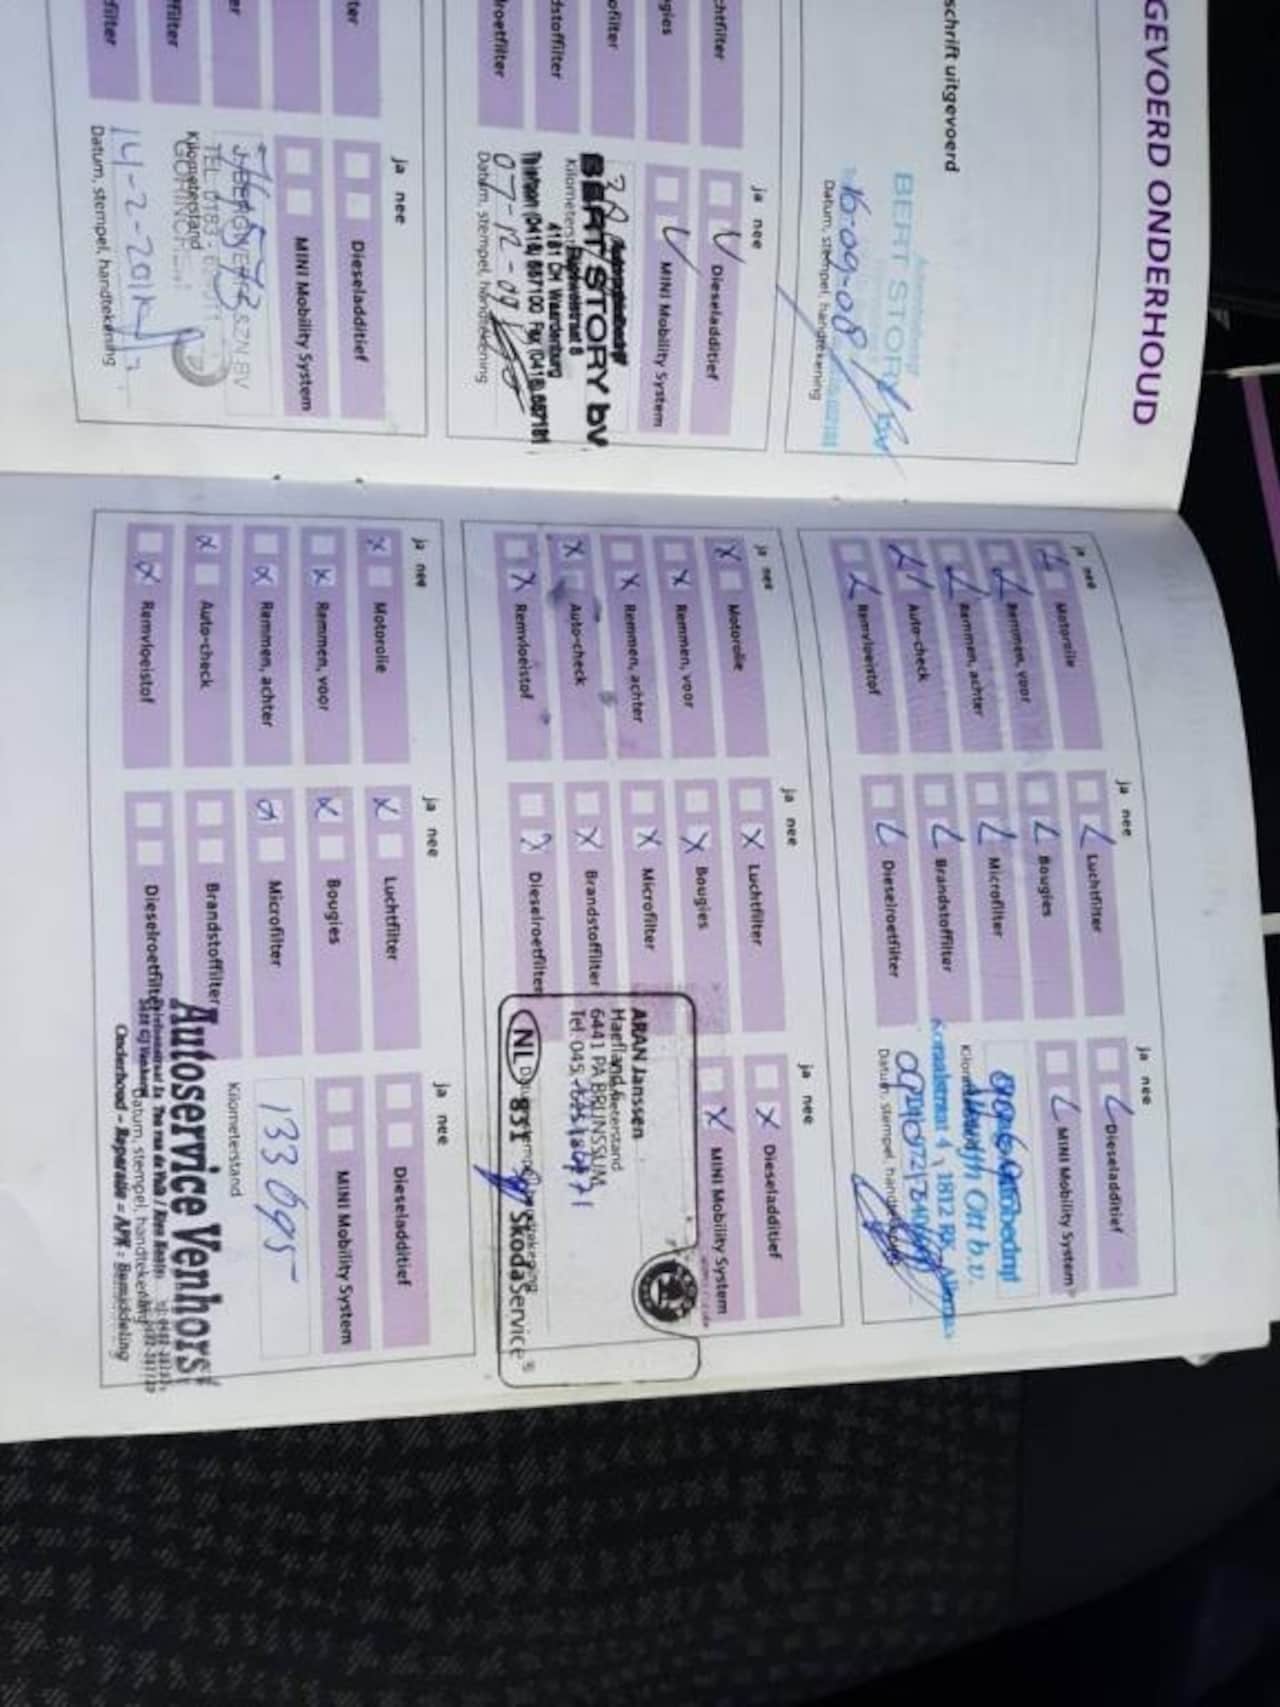 GEVOERD ONDERHOUD
schrift uitgevoerd
BERT STORY BV
16-09-08
Datum, stempel, handtekening
chtfilter
gies
ofilter
dstoffilter
roetfilter
ja nee
Dieseladditief
MINI Mobility System
BERT STORY bv
4181 CH Waardenburg
Telefoon (0418)
07-12-09
Datum, stempel, handtekening
ter
er
filter
filter
ja nee
Dieseladditief
MINI Mobility System
Kilometerstand
14-2-201
Datum, stempel, handtekening
ja nee
Motorolie
Remmen, voor
Remmen, achter
Auto-check
Remvloeistof
ja nee
Luchtfilter
Bougies
Microfilter
Brandstoffilter
Dieselroetfilter
ja nee
Dieseladditief
MINI Mobility System
Ott b.v.
4, 1812 RA
ja nee
Motorolie
Remmen, voor
Remmen, achter
Auto-check
Remvloeistof
ja nee
Luchtfilter
Bougies
Microfilter
Brandstoffilter
Dieselroetfilter
ja nee
Dieseladditief
MINI Mobility System
ARAN Janssen
Haefland
6441 PA BRUNSSUM
Tel. 045
NL 831 SkodaService
ja nee
Motorolie
Remmen, voor
Remmen, achter
Auto-check
Remvloeistof
ja nee
Luchtfilter
Bougies
Microfilter
Brandstoffilter
Dieselroetfilter
ja nee
Dieseladditief
MINI Mobility System
133095
Kilometerstand
Autoservice Venhorst
Datum, stempel, handtekening
Onderhoud - Reparatie - APK - Bemiddeling